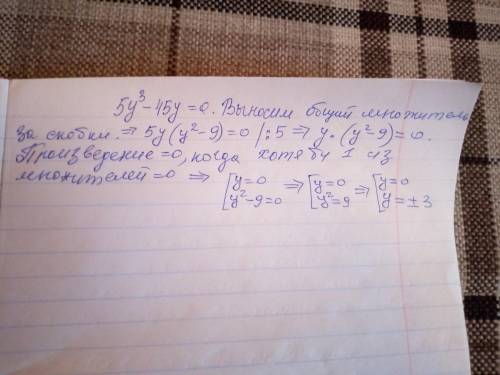 5y³-45y=0. Выносим общий множитель
за скобки. ⇒ 5y(y²-9)=0 |:5 ⇒ y·(y²-9)=0.
Произведение =0, когда хотя бы 1 из
множителей =0 ⇒ [y=0 ⇒ [y=0 ⇒ [y=0
[y²-9=0 [y²=9 [y=±3